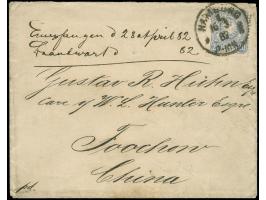 Empfangen d 28 April 82
Beantwort d 82.
HAMBURG
Gustav R. Hühn Esqr
Care of W. L. Hunter Esqre
Foochow
China